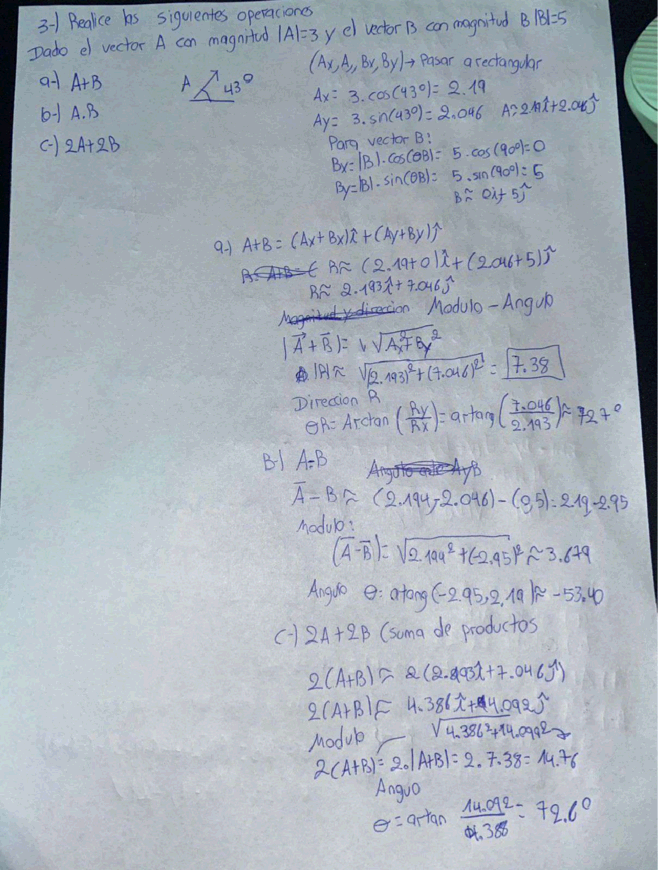 3-) Realice las siguientes operaciones
Dado el vector A con magnitud |A|=3 y el vector B con magnitud B |B|=5
a-) A+B
b-) A.B
c-) 2A+2B
A 43°
(Ax, A,, Bx, By) → Pasar a rectangular
Ax= 3.cos(43°)= 2.19
Ay= 3.sin(43°)= 2.046 A≈2.19î+2.046ĵ
Para vector B:
Bx=|B|.cos(θB)= 5.cos(90°)=0
By=|B|.sin(θB)= 5.sin(90°)=5
B≈ 0î+5ĵ
a-) A+B = (Ax+Bx)î+(Ay+By)ĵ
R≈ (2.19+0)î+(2.046+5)ĵ
R≈ 2.193î+7.046ĵ
Modulo - Angulo
|A⃗+B⃗|= √Ax²+By²
|R|≈ √(2.193)²+(7.046)² = 7.38
Direccion R
θR= Arctan (Ry/Rx)= artang (7.046/2.193)≈ 72.7°
B-) A-B
A̅-B ≈ (2.194,-2.046)-(0,5)=2.19,-2.95
Modulo:
(A̅-B̅)= √2.194²+(-2.95)² ≈ 3.679
Angulo θ: atang(-2.95,2.19)≈ -53.40
C-) 2A+2B (suma de productos
2(A+B)≈ 2(2.193î+7.046ĵ)
2(A+B)≈ 4.386î+14.092ĵ
Modulo √4.386²+14.092²
2(A+B)= 2.|A+B|= 2.7.38= 14.76
Anguo
θ=artan 14.092/4.388 = 72.6°